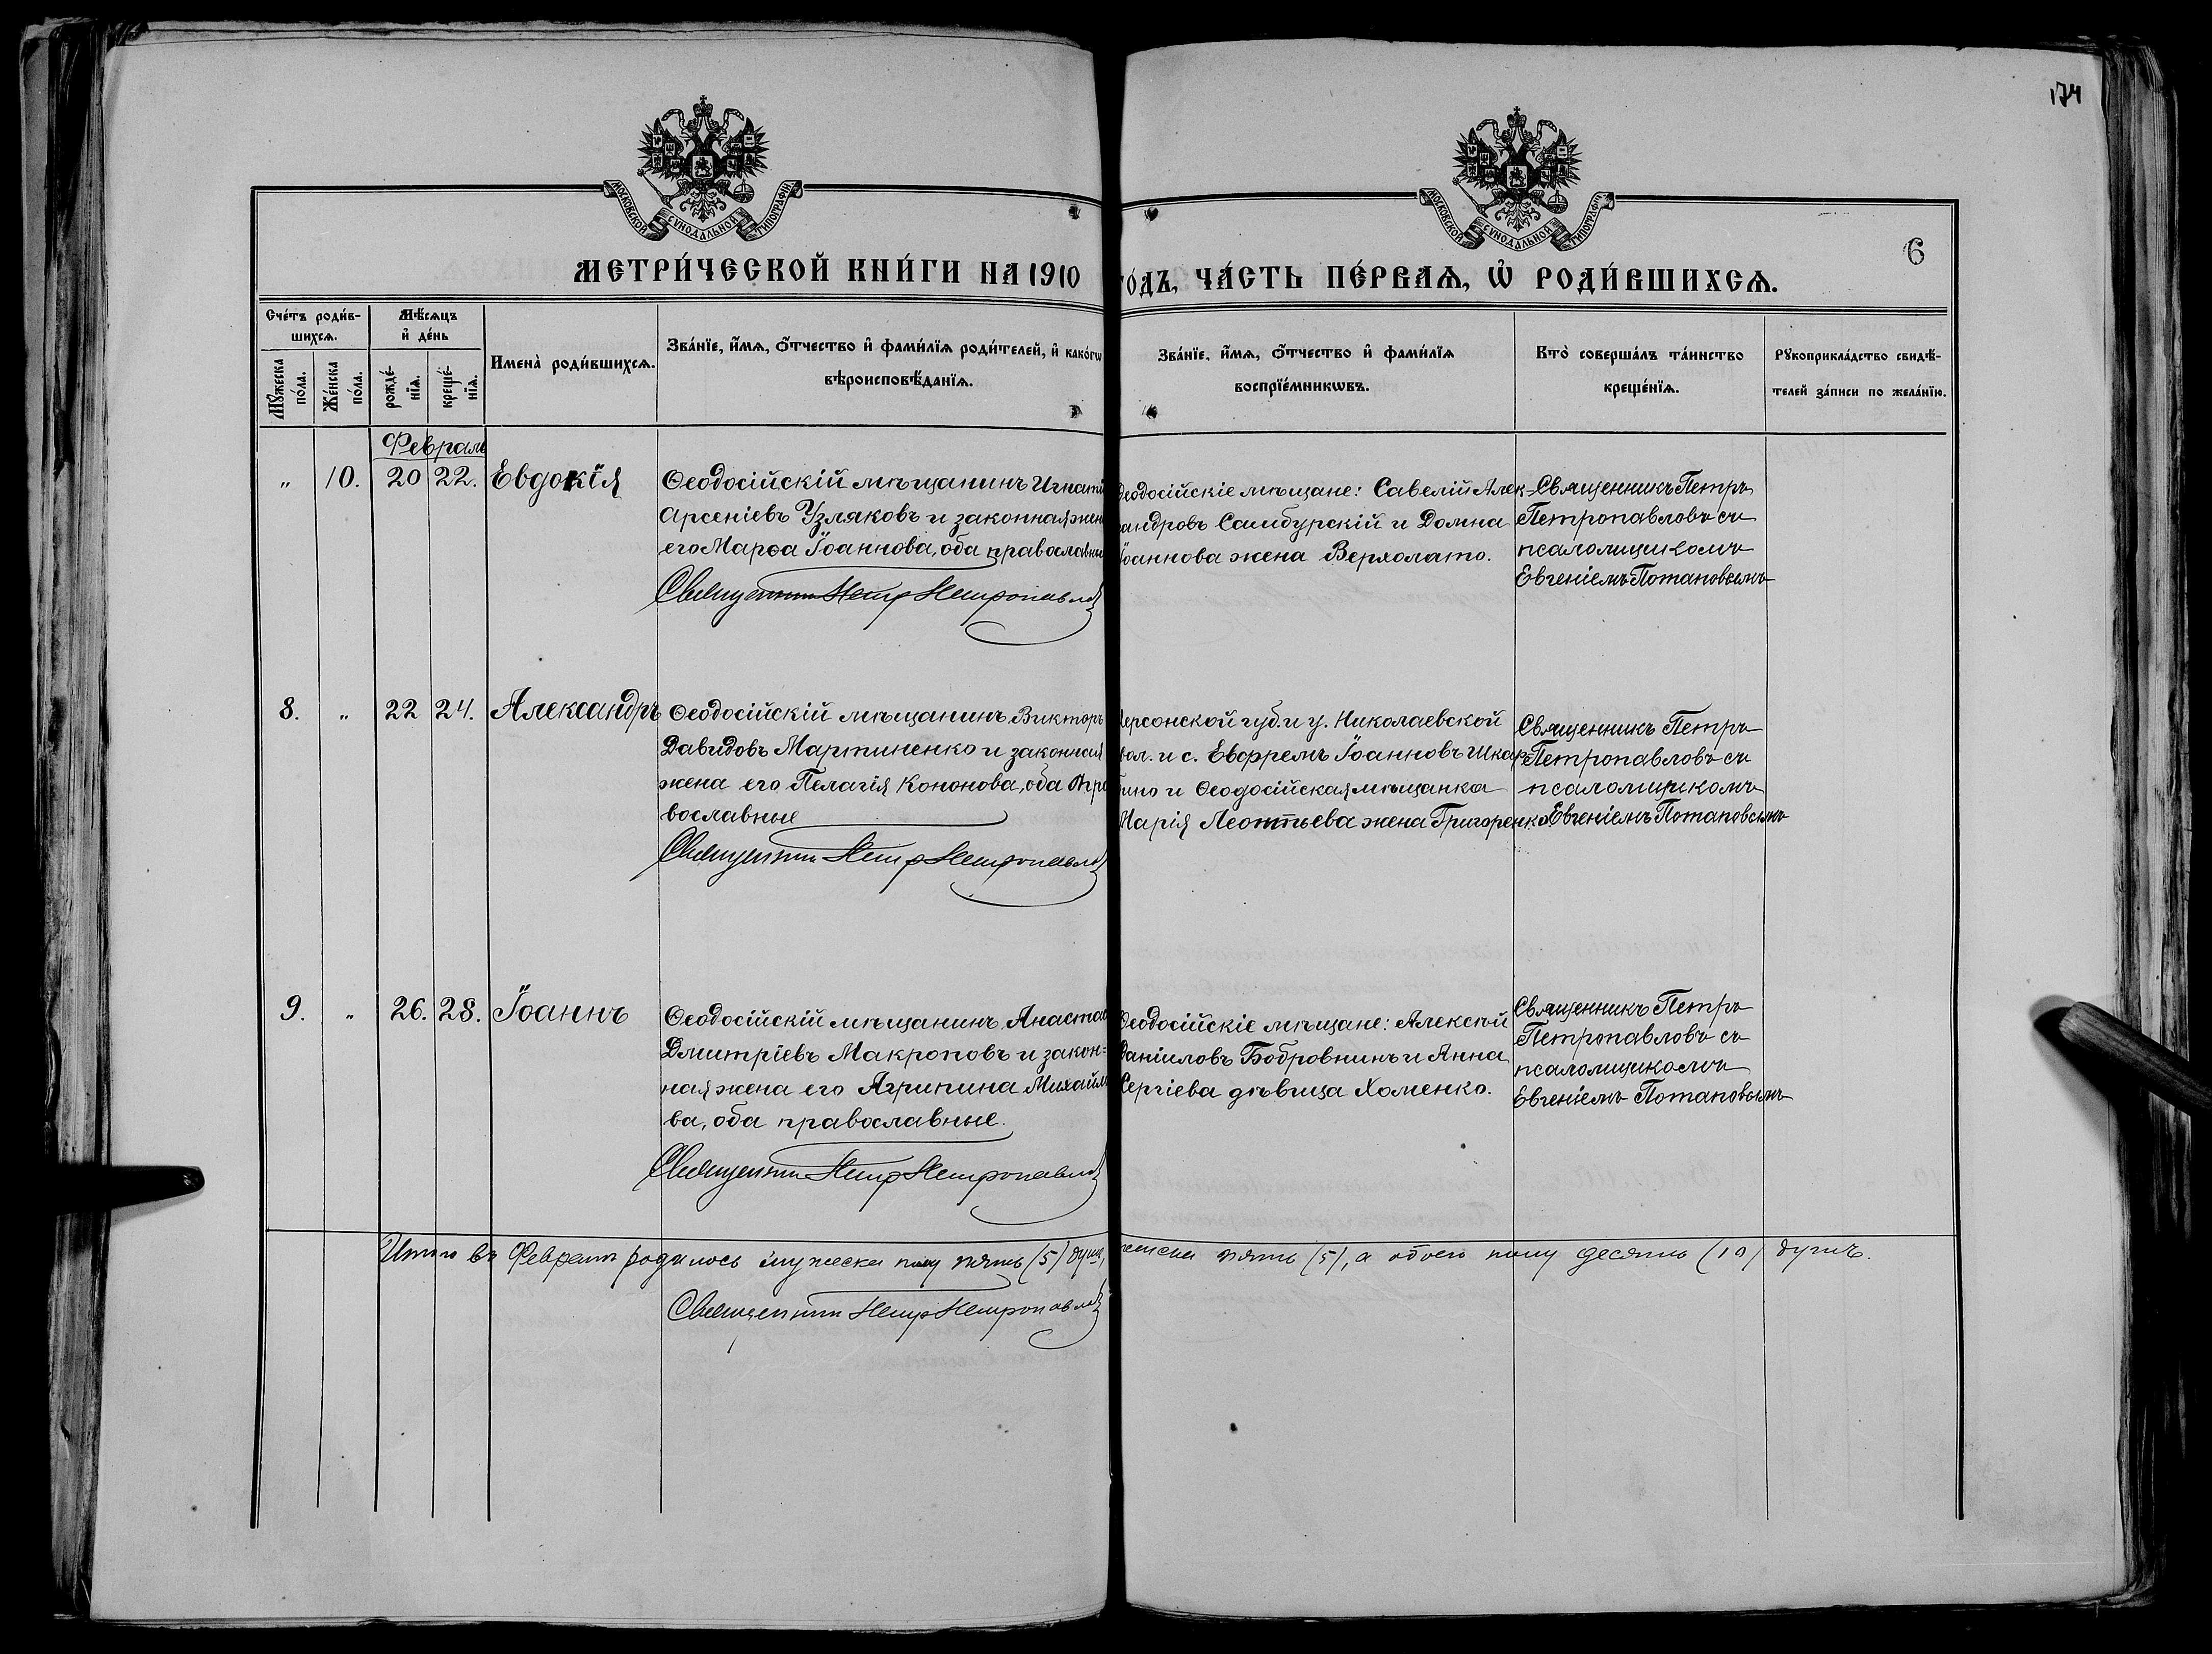 174
МОСКОВСКОЙ СУНОДАЛЬНОЙ ТИПОГРАФІИ
МОСКОВСКОЙ СУНОДАЛЬНОЙ ТИПОГРАФІИ
6
МЕТРИ́ЧЕСКОЙ КНИ́ГИ НА 1910 ГО́ДЪ, ЧА́СТЬ ПЕ́РВАѦ, Ѡ҆ РОДИ́ВШИХСѦ.
Сче́тъ роди́в-
шихсѧ.
Мꙋ́жеска по́ла.
Же́нска по́ла.
Мѣ́сѧцъ
и҆ де́нь
рожде́-
нїѧ.
креще́-
нїѧ.
Имена̀ роди́вшихсѧ.
Зва́нїе, и҆́мѧ, ѻ҆́тчество и҆ фами́лїѧ роди́телей, и҆ како́гѡ
вѣроисповѣ́данїѧ.
Зва́нїе, и҆́мѧ, ѻ҆́тчество и҆ фами́лїѧ
воспрїе́мникѡвъ.
Кто̀ соверша́лъ та́инство
креще́нїѧ.
Рꙋкоприкла́дство свидѣ́-
телей за́писи по жела́нїю.
Февраль
" 10. 20 22. Евдокія
Ѳеодосійскій мѣщанинъ Игнаті
Арсеніевъ Узляковъ и законная жен
его Марѳа Іоаннова, оба православны
Священникъ Петръ Петропавлов
Ѳеодосійскіе мѣщане: Савелій Алек-
сандровъ Самбурскій и Домна
Іоаннова жена Верхолато.
Священникъ Петръ
Петропавловъ съ
псаломщикомъ
Евгеніемъ Потаповымъ
8. " 22 24. Александръ
Ѳеодосійскій мѣщанинъ Викторъ
Давидовъ Мартиненко и законная
жена его Пелагія Кононова, оба пра
вославные
Священникъ Петръ Петропавлов
Херсонской губ. и у. Николаевской
вол. и с. Евфремъ Іоанновъ Шкар-
бино и Ѳеодосійская мѣщанка
Марія Леонтьева жена Григоренко.
Священникъ Петръ
Петропавловъ съ
псаломщикомъ
Евгеніемъ Потаповымъ
9. " 26. 28. Іоаннъ
Ѳеодосійскій мѣщанинъ Анастас
Дмитріевъ Макроповъ и закон=
ная жена его Агрипина Михайло
ва, оба православные.
Священникъ Петръ Петропавлов
Ѳеодосійскіе мѣщане: Алексѣй
Даніиловъ Бобровнинъ и Анна
Сергіева дѣвица Хоменко.
Священникъ Петръ
Петропавловъ съ
псаломщикомъ
Евгеніемъ Потаповымъ
Итого въ Февралѣ родилось мужеска полу пять (5) душъ, женска пять (5), а обоего полу десять (10) душъ.
Священникъ Петръ Петропавлов